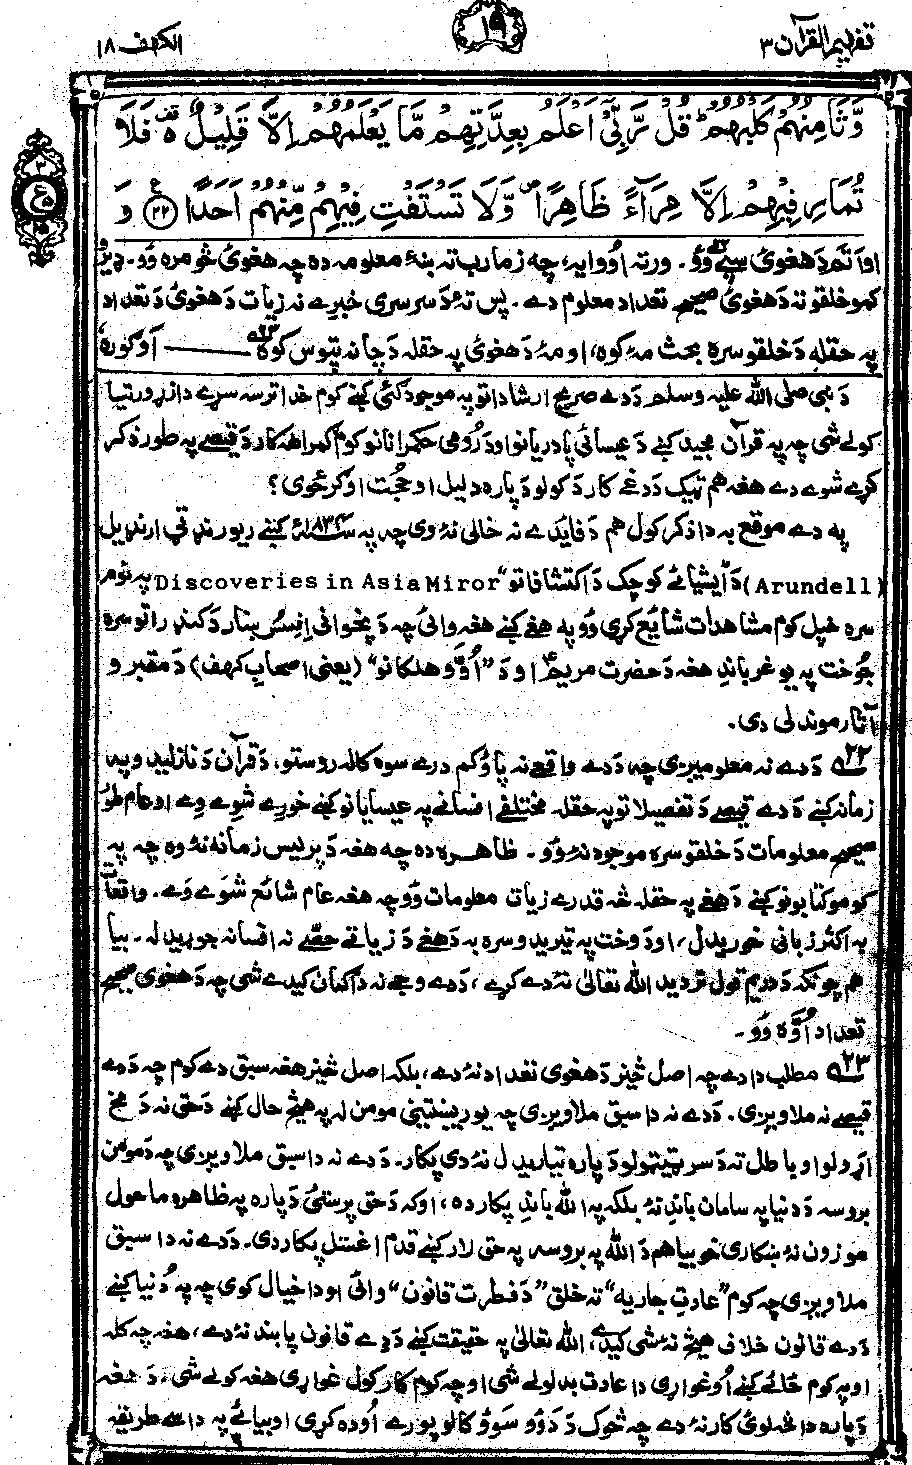 تفهیم القرآن ۳
۱۹
الکهف ۱۸
وَّثَامِنُهُمْ كَلْبُهُمْ ؕ قُلْ رَّبِّیْۤ اَعْلَمُ بِعِدَّتِهِمْ مَّا یَعْلَمُهُمْ اِلَّا قَلِیْلٌ ۬۫ فَلَا
تُمَارِ فِیْهِمْ اِلَّا مِرَآءً ظَاهِرًا ۪ وَّلَا تَسْتَفْتِ فِیْهِمْ مِّنْهُمْ اَحَدًا ﴿۲۲﴾ وَ
او اتم د هغوئ سپے وؤ. ورته اووایه، چه زما رب ته ښۀ معلومه ده چه هغوئ څومره وو. ډیرو
کمو خلقو ته د هغوئ صحیح تعداد معلوم دے. پس تۀ د سرسری خبرے نه زیات د هغوئ د تعداد
په حقله د خلقو سره بحث مه کوه، او مۀ د هغوئ په حقله د چا نه تپوس کوه ۲۳ه ـــــ او ګوره
د نبی صلی الله علیه وسلم د دے صریح ارشاداتو په موجودګئ کښے کوم خدا ترسه سړے دا زړورتیا
کولے شی چه په قرآن مجید کښے د عیسائی پادریانو او د رومی حکمرانانو کوم ګمراهه کار د قیصے په طور ذکر
کړے شوے دے هغه هم ټیک د دغے کار د کولو د پاره دلیل او حُجّت اوګرځوی؟
په دے موقع به دا ذکر کول هم د فایدے نه خالی نۀ وی چه په ۱۸۳۴ء کښے ریورنډ ټی ارنډیل
(Arundell) د ایشیائے کوچک د اکتشافاتو "Discoveries in Asia Miror په نوم
سره خپل کوم مشاهدات شایع کړی وؤ په هغے کښے هغه وائی چه د پخوانی اِفِسُس ښار د کنډراتو سره
جوخت په یو غر باندِ هغه د حضرت مریم او د "اُوّو هلکانو" (یعنی اصحاب کهف) د مقبرو
آثار موندلی دی.
۲۲ه د دے نه معلومیږی چه د دے واقعے نه پاؤ کم درے سوه کاله روستو، د قرآن د نازلیدو په
زمانه کښے د دے قیصے د تفصیلاتو په حقله مختلفے افسانے په عیسایانو کښے خورے شوے وے او عام طور
صحیح معلومات د خلقو سره موجود نۀ وؤ. ظاهره ده چه هغه د پریس زمانه نۀ وه چه په
کومو کتابونو کښے د هغے په حقله څه قدرے زیات معلومات وؤ چه هغه عام شائع شوے وے. واقعات
به اکثر زبانی خوریدل، او د وخت په تیریدو سره به د هغے د زیاتے حصے نه افسانه جوړیده. بیا
هم چونکه د دریم قول تردید الله تعالیٰ نۀ دے کړے، د دے وجے نه دا ګمان کیدے شی چه د هغوی صحیح
تعداد اُوّه وو.
۲۳ه مطلب دا دے چه اصل څیز د هغوی تعداد نۀ دے، بلکه اصل څیز هغه سبق دے کوم چه د دے
قیصے نه ملاویږی. د دے نه دا سبق ملاویږی چه یو رښتینی مومن له په هیڅ حال کښے د حق نه د مخ
اړولو او باطل ته د سر ټیټولو د پاره تیاریدل نۀ دی پکار. د دے نه دا سبق ملاویږی چه د مومن
بروسه د دنیا په سامان باندِ نۀ بلکه په الله باندِ پکار ده، او که د حق پرستئ د پاره په ظاهره ماحول
موزون نۀ ښکاری خو بیا هم د الله په بروسه په حق لار کښے قدم اغستل پکار دی. د دے نه دا سبق
ملاویږی چه کوم "عادتِ جاریه" ته خلق "د فطرت قانون" وائی او دا خیال کوی چه په دُنیا کښے
د دے قانون خلاف هیڅ نۀ شی کیدے، الله تعالیٰ په حقیقت کښے د دے قانون پابند نۀ دے، هغه چه کله
او په کوم ځائے کښے اوغواړی دا عادت بدلولے شی او چه کوم کار کول غواړی هغه کولے شی. د هغه
د پاره دا څه لوئ کار نۀ دے چه څوک د دوؤ سوؤ کالو پورے اُوده کړی او بیائے په داسے طریقه